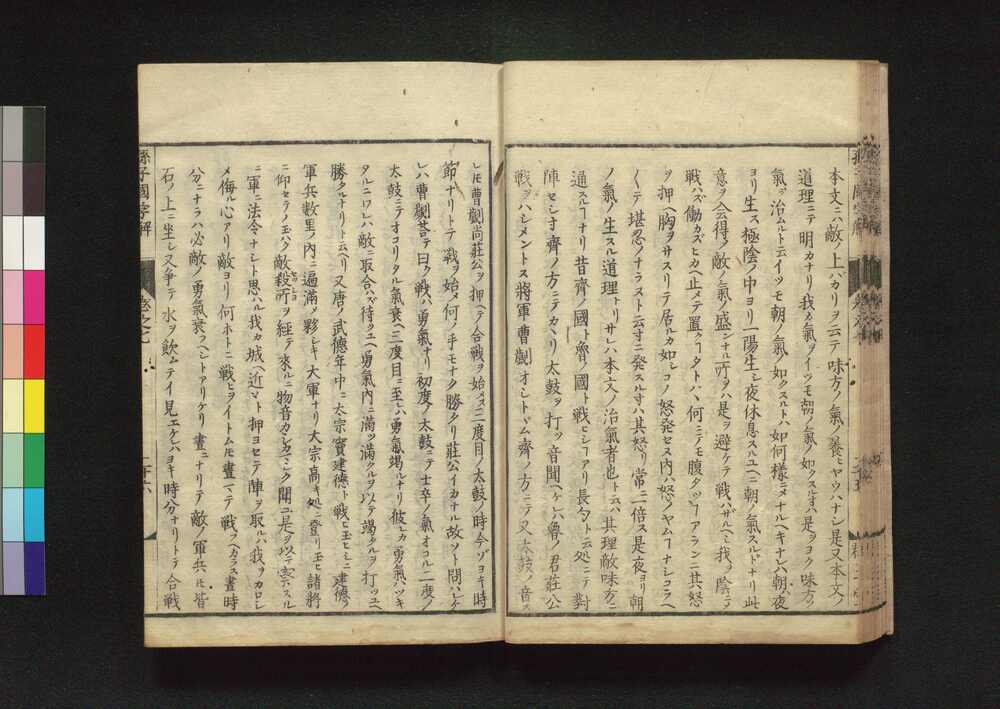 本文ニハ敵ノ上バカリヲ云テ味方ノ氣ノ養ヒヤウハナシ是又本文ノ
道理ニテ明カナリ我カ氣ヲイツモ朝ノ氣ノ如クスルヿハ是ヲヨク味方ノ
氣ヲ治ムルト云イツモ朝ノ氣ノ如クスルトハ如何様ニメナルヘキナレハ朝ハ夜
ヨリ生ス極陰ノ中ヨリ一陽生シ夜休息スルユヘニ朝ノ氣スルドナリ此
意ヲ会得ノ敵ノ氣ノ盛ンナル所ヲハ是ヲ避ケテ戦ハザルヘシ我ノ陰ニテ
戦ハズ働カズヒカヘ止メテ置クヿタトヘハ何ニテモ腹タツヿアランニ其怒
ヲ押ヘ胸ヲサスリテ居ルカ如シコノ怒発セス内ハ怒ノヤムヿナシコラヘ
〱テ堪忍ノナラスト云寸ニ発スル寸ハ其怒リ常ニ一倍ス是夜ヨリ朝
ノ氣ノ生スル道理トリサレハ本文ノ治氣者也ト云ハ其理敵味方ニ
通スルヿナリ昔齊ノ國ト魯ノ國ト戦ヒシヿアリ長勺ト云処ニテ對
陣セシニ齊ノ方ニテカヽリ太鼓ヲ打ツ音聞ヘケレハ魯ノ君莊公
戦ヲハシメントス將軍曹劌オシトヾム齊ノ方ニテ又太鼓ノ音ス
レ𪜈曹劌尚莊公ヲ押ヘテ合戦ヲ始メス三度目ノ太鼓ノ時今ゾヨキ時
節ナリトテ戦ヲ始メ何ノ手モナク勝タリ莊公イカナル故ソト問ハレケ
レハ曹劌荅テ曰ク戦ハ勇氣ナリ初度ノ太鼓ニテ士卒ノ氣オコル二度ノ
太鼓ニテオコリタル氣衰ヘ三度目ニ至レハ勇氣竭ルナリ彼レカ勇氣ハツキ
タルニワレハ敵ニ取合ハズ待ツユヘ勇氣内ニ滿ツ滿ツルヲ以テ竭タルヲ打ツユヘ
勝タルナリト云ヘリ又唐ノ武德年中ニ太宗竇建德ト戦ヒ玉ヒシニ建德カ
軍兵數里ノ内ニ遍滿メ夥シキ大軍ナリ太宗高キ処ニ登リ玉ヒ諸將
ニ仰セテノ玉ハク敵殺所ヲ經テ來ルニ物音カシカマシク聞ユ是ヲ以テ察スル
ニ軍ニ法令ナシト思ハル我カ城ヘ近々ト押ヨセテ陣ヲ取ルハ我ヲカロシ
メ侮ル心アリ敵ヨリ何ホトニ戦ヒヲイトムトモ晝マテ戦フヘカラス晝時
分ニナラハ必敵ノ勇氣衰フヘシトアリケリ晝ニナリテ敵ノ軍兵𪜈皆
石ノ上ニ坐シ又争テ水ヲ飲ムテイ見エケレハヨキ時分ナリトテ合戦
孫子國字解